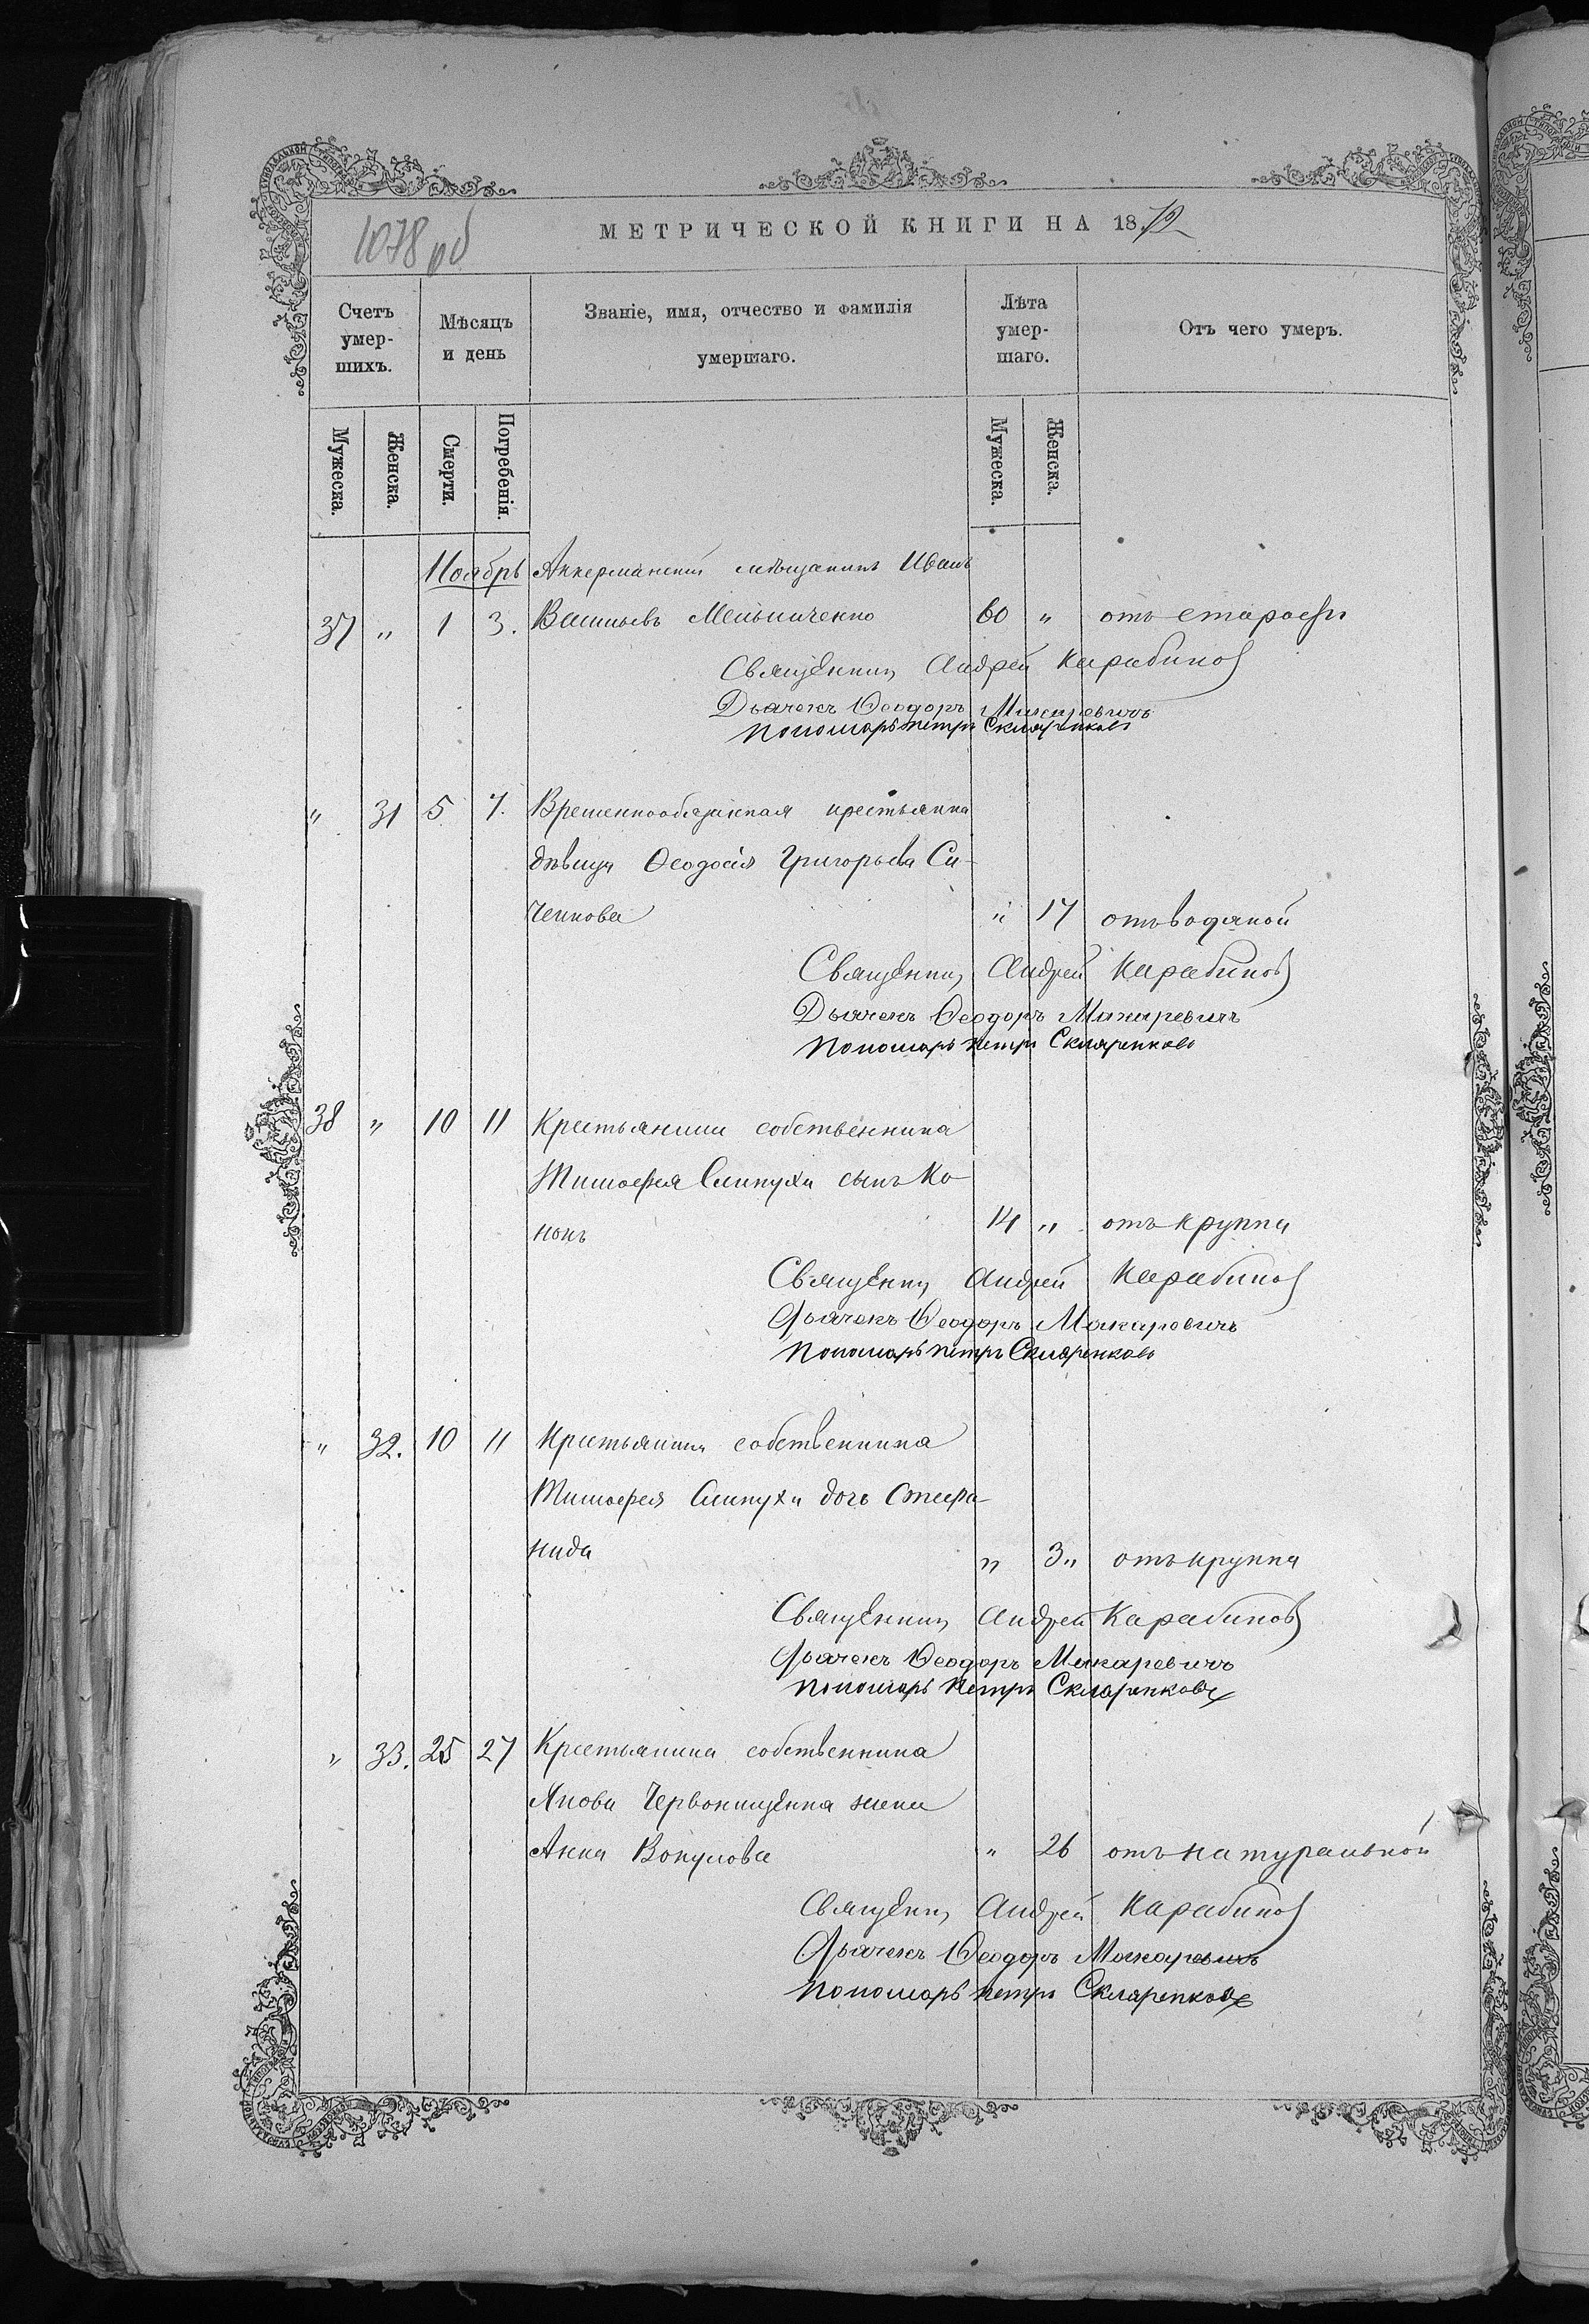 1078 об
МЕТРИЧЕСКОЙ КНИГИ НА 1872
Счетъ умер-шихъ.
Мѣсяцъ и день
Званіе, имя, отчество и фамилія умершаго.
Лѣта умер-шаго.
Отъ чего умеръ.
Мужеска.
Женска.
Смерти.
Погребенія.
Мужеска.
Женска.
Ноябрь Аккерманскій мѣщанинъ Иванъ
37 " 1 3. Васильевъ Мельниченко 60 " отъ старости
Священникъ Андрей Карабинов
Дьячекъ Ѳеодоръ Макаревичъ
Пономарь Петръ Скляренковъ
" 31 5 7. Временнообязанная крестьянка
дѣвица Ѳеодосія Григорьева Си-
ченкова " 17 отъ водяной
Священникъ Андрей Карабинов
Дьячекъ Ѳеодоръ Макаревичъ
Пономарь Петръ Скляренковъ
38 " 10 11 Крестьянина собственника
Тимофея Слипухи сынъ Ко-
нонъ 14 " отъ круппа
Священникъ Андрей Карабинов
Дьячекъ Ѳеодоръ Макаревичъ
Пономарь Петръ Скляренковъ
" 32. 10 11 Крестьянина собственника
Тимофея Слипухи дочь Стефа-
нида " 3 " отъ круппа
Священникъ Андрей Карабинов
Дьячекъ Ѳеодоръ Макаревичъ
Пономарь Петръ Скляренковъ
" 33. 25 27 Крестьянина собственника
Якова жена
Анна " 26 отъ натуральной
Священникъ Андрей Карабинов
Дьячекъ Ѳеодоръ Макаревичъ
Пономарь Петръ Скляренковъ